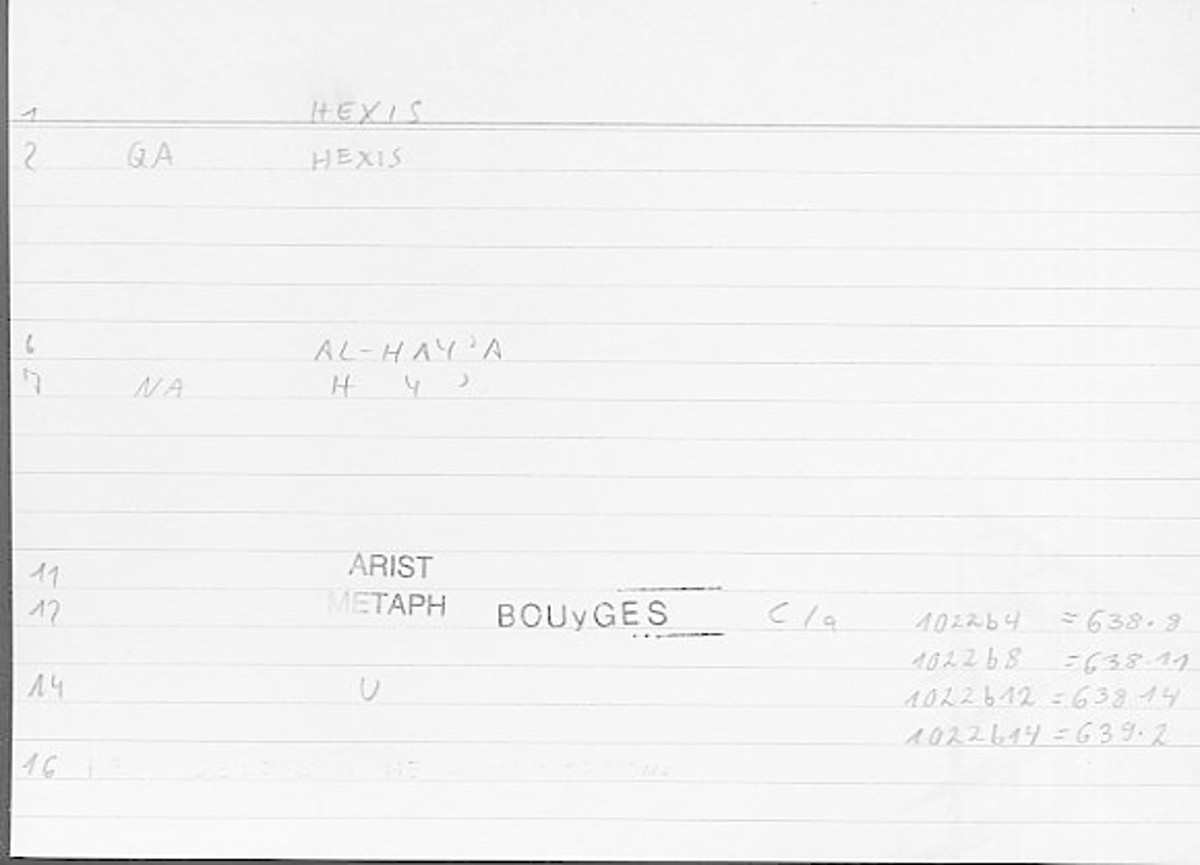 1 HEXIS
2 QA HEXIS
6 AL-HAY'A
7 NA H Y '
11 ARIST
12 METAPH BOUyGES C/a 1022b4 = 638.8
1022b8 = 638.11
14 U 1022b12 = 638.14
1022b14 = 639.2
16